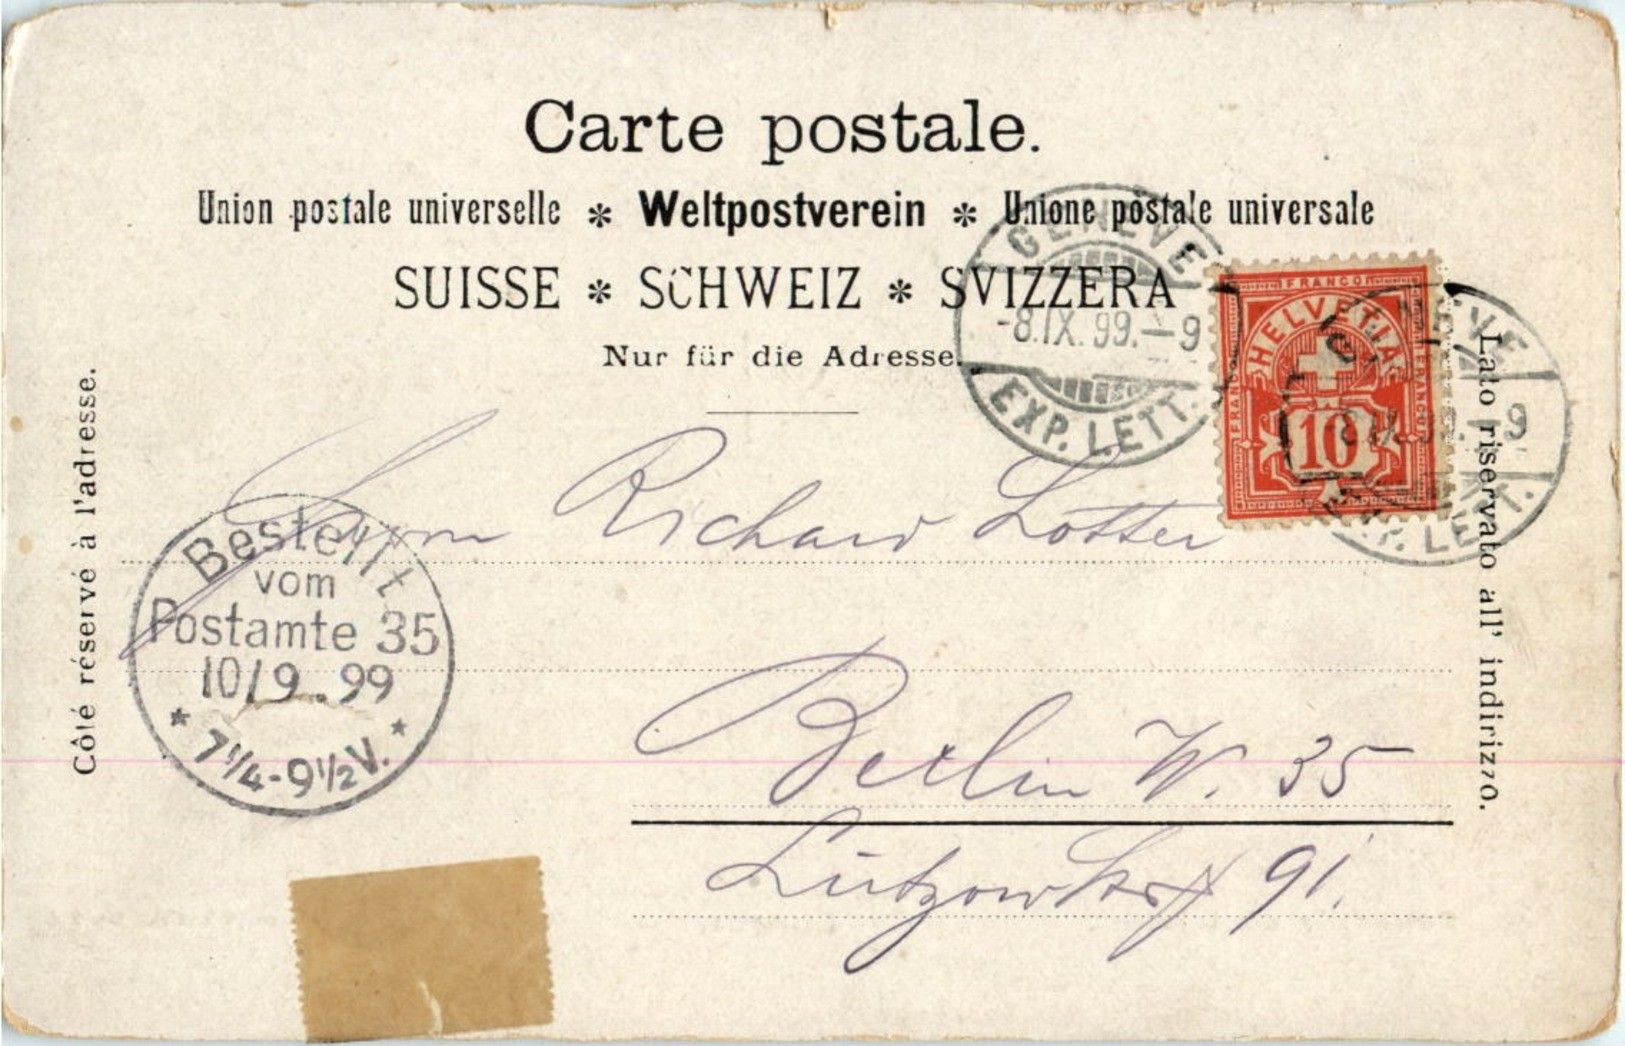 Carte postale.
Union postale universelle * Weltpostverein * Unione postale universale
SUISSE * SCHWEIZ * SVIZZERA
Nur für die Adresse.
GENÈVE
-8.IX.99.-9
EXP. LETT.
FRANCO
HELVETIA
FRANCO
FRANCO
10
GENÈVE
-8.IX.99.-9
EXP. LETT.
Côté réservé à l'adresse.
Lato riservato all' indirizzo.
Herrn Richard Lotter
Bestellt
vom
Postamte 35
10/9.99
* 7¼-9½V. *
Berlin W. 35
Lützowstr 91.